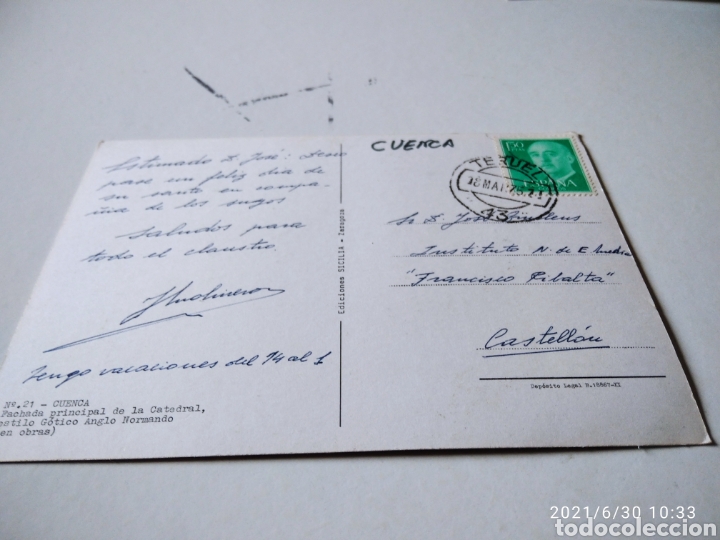 CUENCA
Estimado D. José: Deseo
pase un feliz día de
su santo en compa-
ñia de los suyos
Saludos para
todo el claustro.
Tengo vacaciones del 14 al 1
Nº.21 - CUENCA
Fachada principal de la Catedral,
estilo Gótico Anglo Normando
(en obras)
Ediciones SICILIA - Zaragoza
TERUEL
18 MAR 75.21
43
ESPAÑA
Sr. D. José
Instituto N. de E. Media
"Francisco Ribalta"
Castellón
Depósito Legal B.15867-XI
2021/6/30 10:33
todocoleccion.net